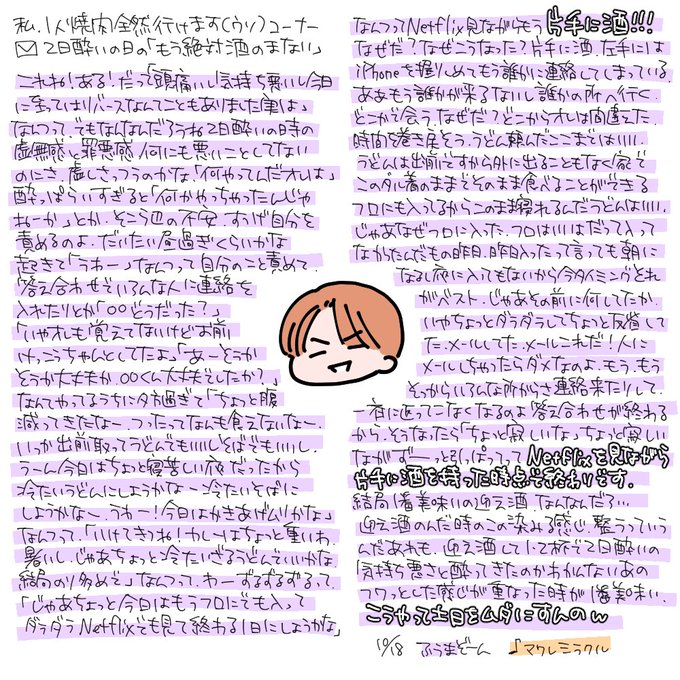 私、1人焼肉全然行けます(ウソ)コーナー
✉2日酔いの日の「もう絶対酒のまない」
これね!ある!だって「頭痛いし気持ち悪いし今日
に至ってはリバースなんてこともありました実は」
なんつって。でもなんなんだろうね2日酔いの時の
虚無感と罪悪感。何にも悪いことしてない
のにさ。虚しさっつうのかな。「何やってんだオレは」
酔っぱらいすぎると「何かやっちゃったんじゃ
ねーか」とか。そこら辺の不安。すっげ自分を
責めるのよ。だいたい昼過ぎくらいかな
起きて「うわー」なんつって自分のこと責めて。
答え合わせでいろんな人に連絡を
入れたりとか「〇〇どうだった?」
「いやオレも覚えてないけどお前
けっこうちゃんとしてたよ」「あーそうか
そうか大丈夫か。〇〇くん大丈夫でしたか?」
なんてやってるうちに夕方過ぎて「ちょっと腹
減ってきたなー。つったってなんも食えないなー。
いっか出前取ってうどんでもいいしそばでもいいし。
うーん今日はちょっと寝苦しい夜だったから
冷たいうどんにしようかなー冷たいそばに
しようかなー。うわー!今日はかきあげんりかな」
なんつって。「いけてきつね!カレーはちょっと重いわ
暑いし。じゃあちょっと冷たいざるうどんでいいかな
結局のり多めで」なんつって。わーずるずるずるって。
「じゃあちょっと今日はもうフロにでも入って
ダラダラNetflixでも見て終わる1日にしようかな」
なんつってNetflix見ながらもう片手に酒!!!
なぜだ?なぜこうなった?片手に酒、左手には
iPhoneを握りしめてもう誰かに連絡してしまっている。
ああもう誰かが来るないし誰かの所へ行く。
どこかで会う。なぜだ?どこからオレは間違えた。
時間を巻き戻そう。うどん頼んだここまではいい。
うどんは出前ですから外に出ることもなく家で
このダル着のままでそのまま食べることができる
フロにも入ってるからこのまま寝れるんだうどんはいい。
じゃあなぜフロに入った。フロはいいよだって入って
なかったんだもの昨日。昨日入ったって言っても朝に
なるし夜に入ってもないから今タイミングとれ
がベスト。じゃあその前に何してたか。
いやちょっとダラダラしてちょっと反省して
た。メールしてた。メールこれだ!人に
メールしちゃったらダメなのよ。もう。もう
そっからいろんな所からさ連絡来たりして。
一斉に返ってこなくなるのよ答え合わせが終わる
から。そうなったら「ちょっと寂しいな」ちょっと寂しい
ながずーーっと引っぱってってNetflixを見ながら
片手に酒を持った時点で終わります。
結局1番美味いの迎え酒。なんなんだろ…
迎え酒のんだ時のこの染みる感じ。整うっていう
んだあれも。迎え酒して1、2杯で2日酔いの
気持ち悪さと酔ってきたのかわかんないあの
フワッとした感じが重なった時が1番美味い。
こうやって土日をムダにすんのw
10/18 ふうまどーん ♪マクレミラクル